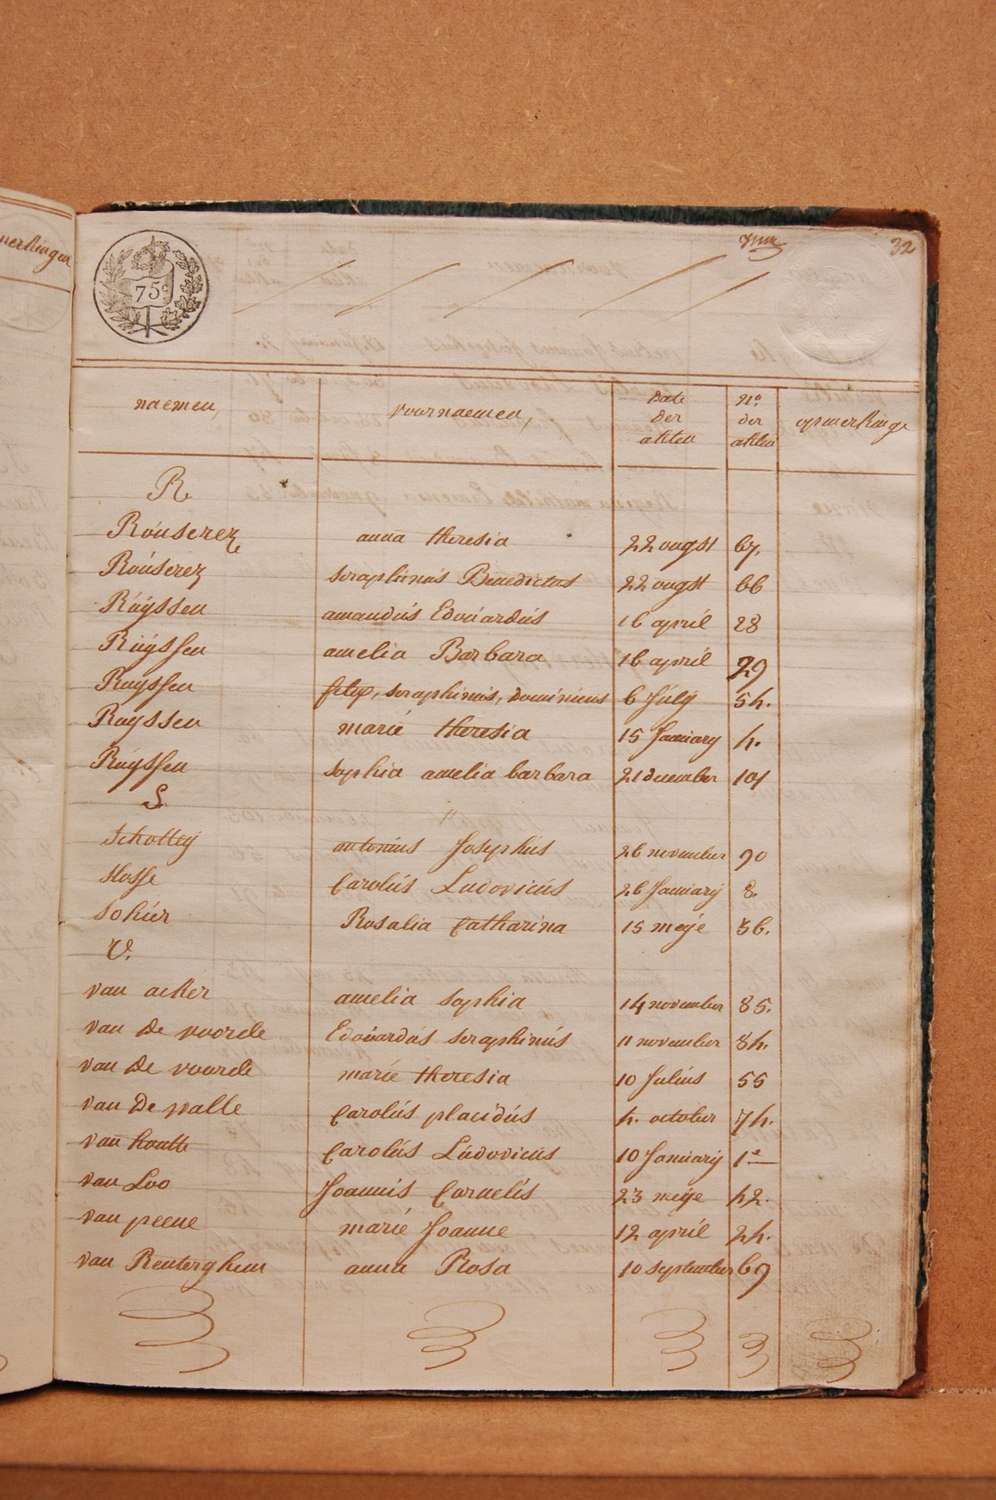 merkingen
75c
32
naemen voornaemen Date der akten no der akten opmerkinge
R
Róuserez anna theresia 22 ougst 67.
Róuserez seraphinus Benedictus 22 ougst 66
Rúÿssen amandús Edoúardús 16 april 28
Rúÿssen amelia Barbara 16 april 29
Ruyssen felix, seraphinus, dominicus 6 júlÿ 54.
Ruyssen marie theresia 15 Januarÿ 4.
Rúÿssen sophia amelia barbara 21 december 101
S. "
Schottey antonius Josephús 26 november 90
Slosse Carolús Ludovicús 26 Januarÿ 8
Sohier Rosalia Catharina 15 meÿe 36.
V.
van acker amelia sophia 14 november 85.
van De voorde Edoúardus seraphinús 11 november 84.
van De voorde marie theresia 10 Julius 55
van De walle Carolús placidús 4. october 74.
van houtte Carolús Lúdovicus 10 Januarÿ 1e
van Loo Joannis Cornelis 23 meÿe 42.
van peene marie Joanne 12 april 24.
van Renterghem anna Rosa 10 september 69